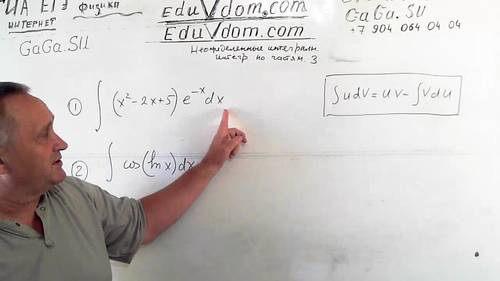 ЦА ЕГЭ физики
ИНТЕРНЕТ
GaGa.SU
EduVdom.com
EduVdom.com
Неопределенные интегралы.
интегр по частям. 3
GaGa.SU
+7 904 064 04 04
① ∫ (x² - 2x + 5) e^{-x} dx
∫u dV = uV - ∫V du
② ∫ cos(ln x) dx